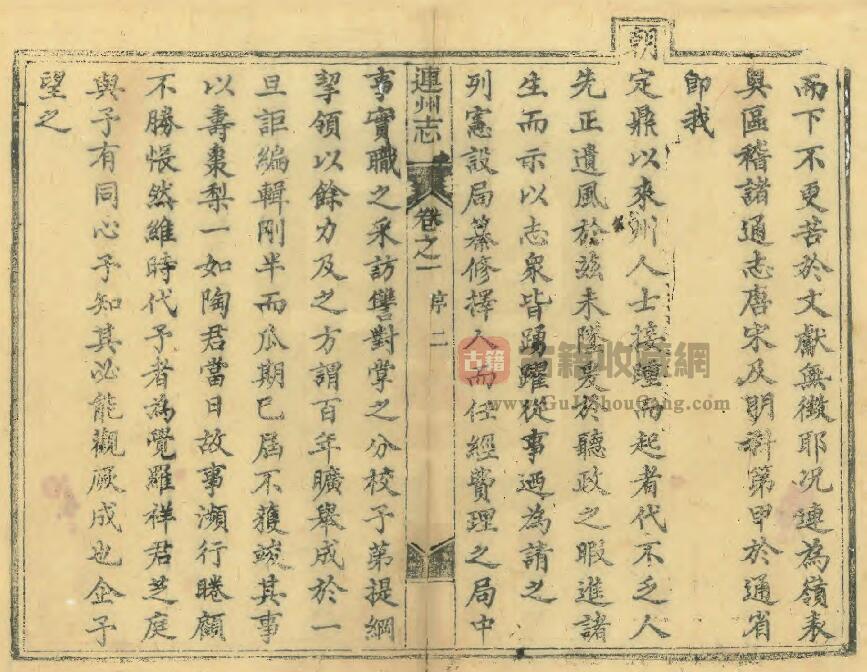 而下不更苦於文獻無徵耶况連為嶺表
奧區稽諸通志唐宋及明科第甲於通省
卽我
朝
定鼎以來州人士接踵而起者代不乏人
先正遺風於茲未墜爰於聽政之暇進諸
生而示以志衆皆踴躍從事迺為請之
列憲設局纂修擇人而任經費理之局中
連州志
卷之一
序
二
事實職之采訪讐對掌之分校予第提綱
挈領以餘力及之方謂百年曠舉成於一
旦詎編輯剛半而瓜期已屆不獲竣其事
以壽棗梨一如陶君當日故事瀕行睠顧
不勝悵然維時代予者為覺羅祥君芝庭
與予有同心予知其必能觀厥成也企予
望之
古籍
古籍收藏網
www.GuJiShouCang.com